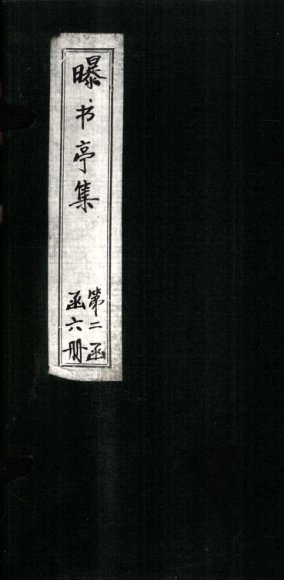 曝书亭集
第二函
函六册